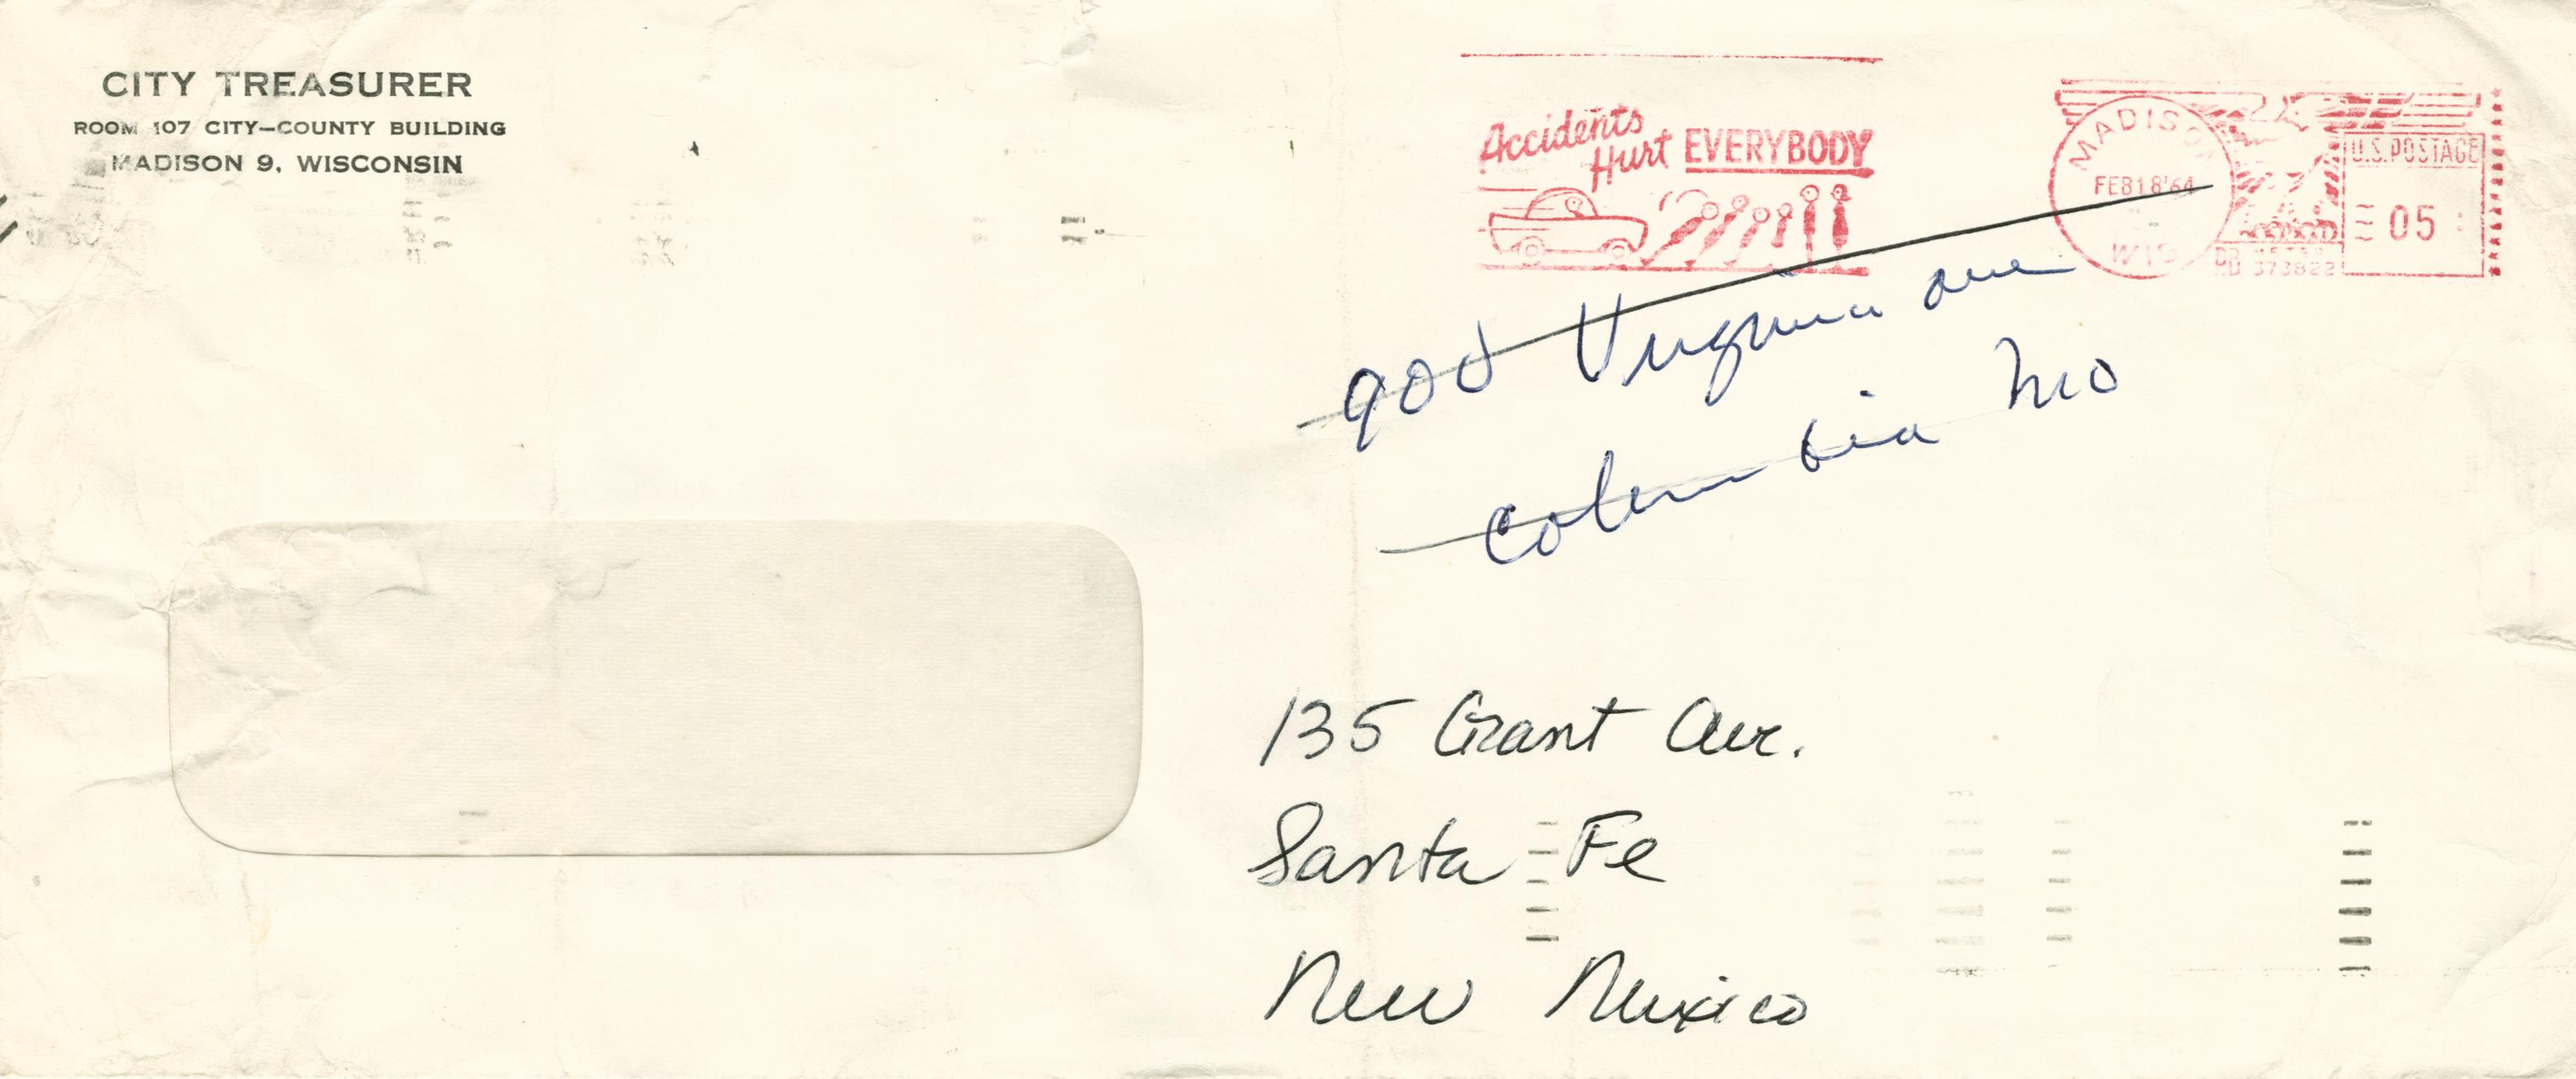 CITY TREASURER
ROOM 107 CITY-COUNTY BUILDING
MADISON 9, WISCONSIN
Accidents
Hurt EVERYBODY
MADISON
FEB18'64
WIS
U.S. POSTAGE
05
PB METER
373822
900 Virginia ave
Columbia Mo
135 Grant Ave.
Santa Fe
New Mexico